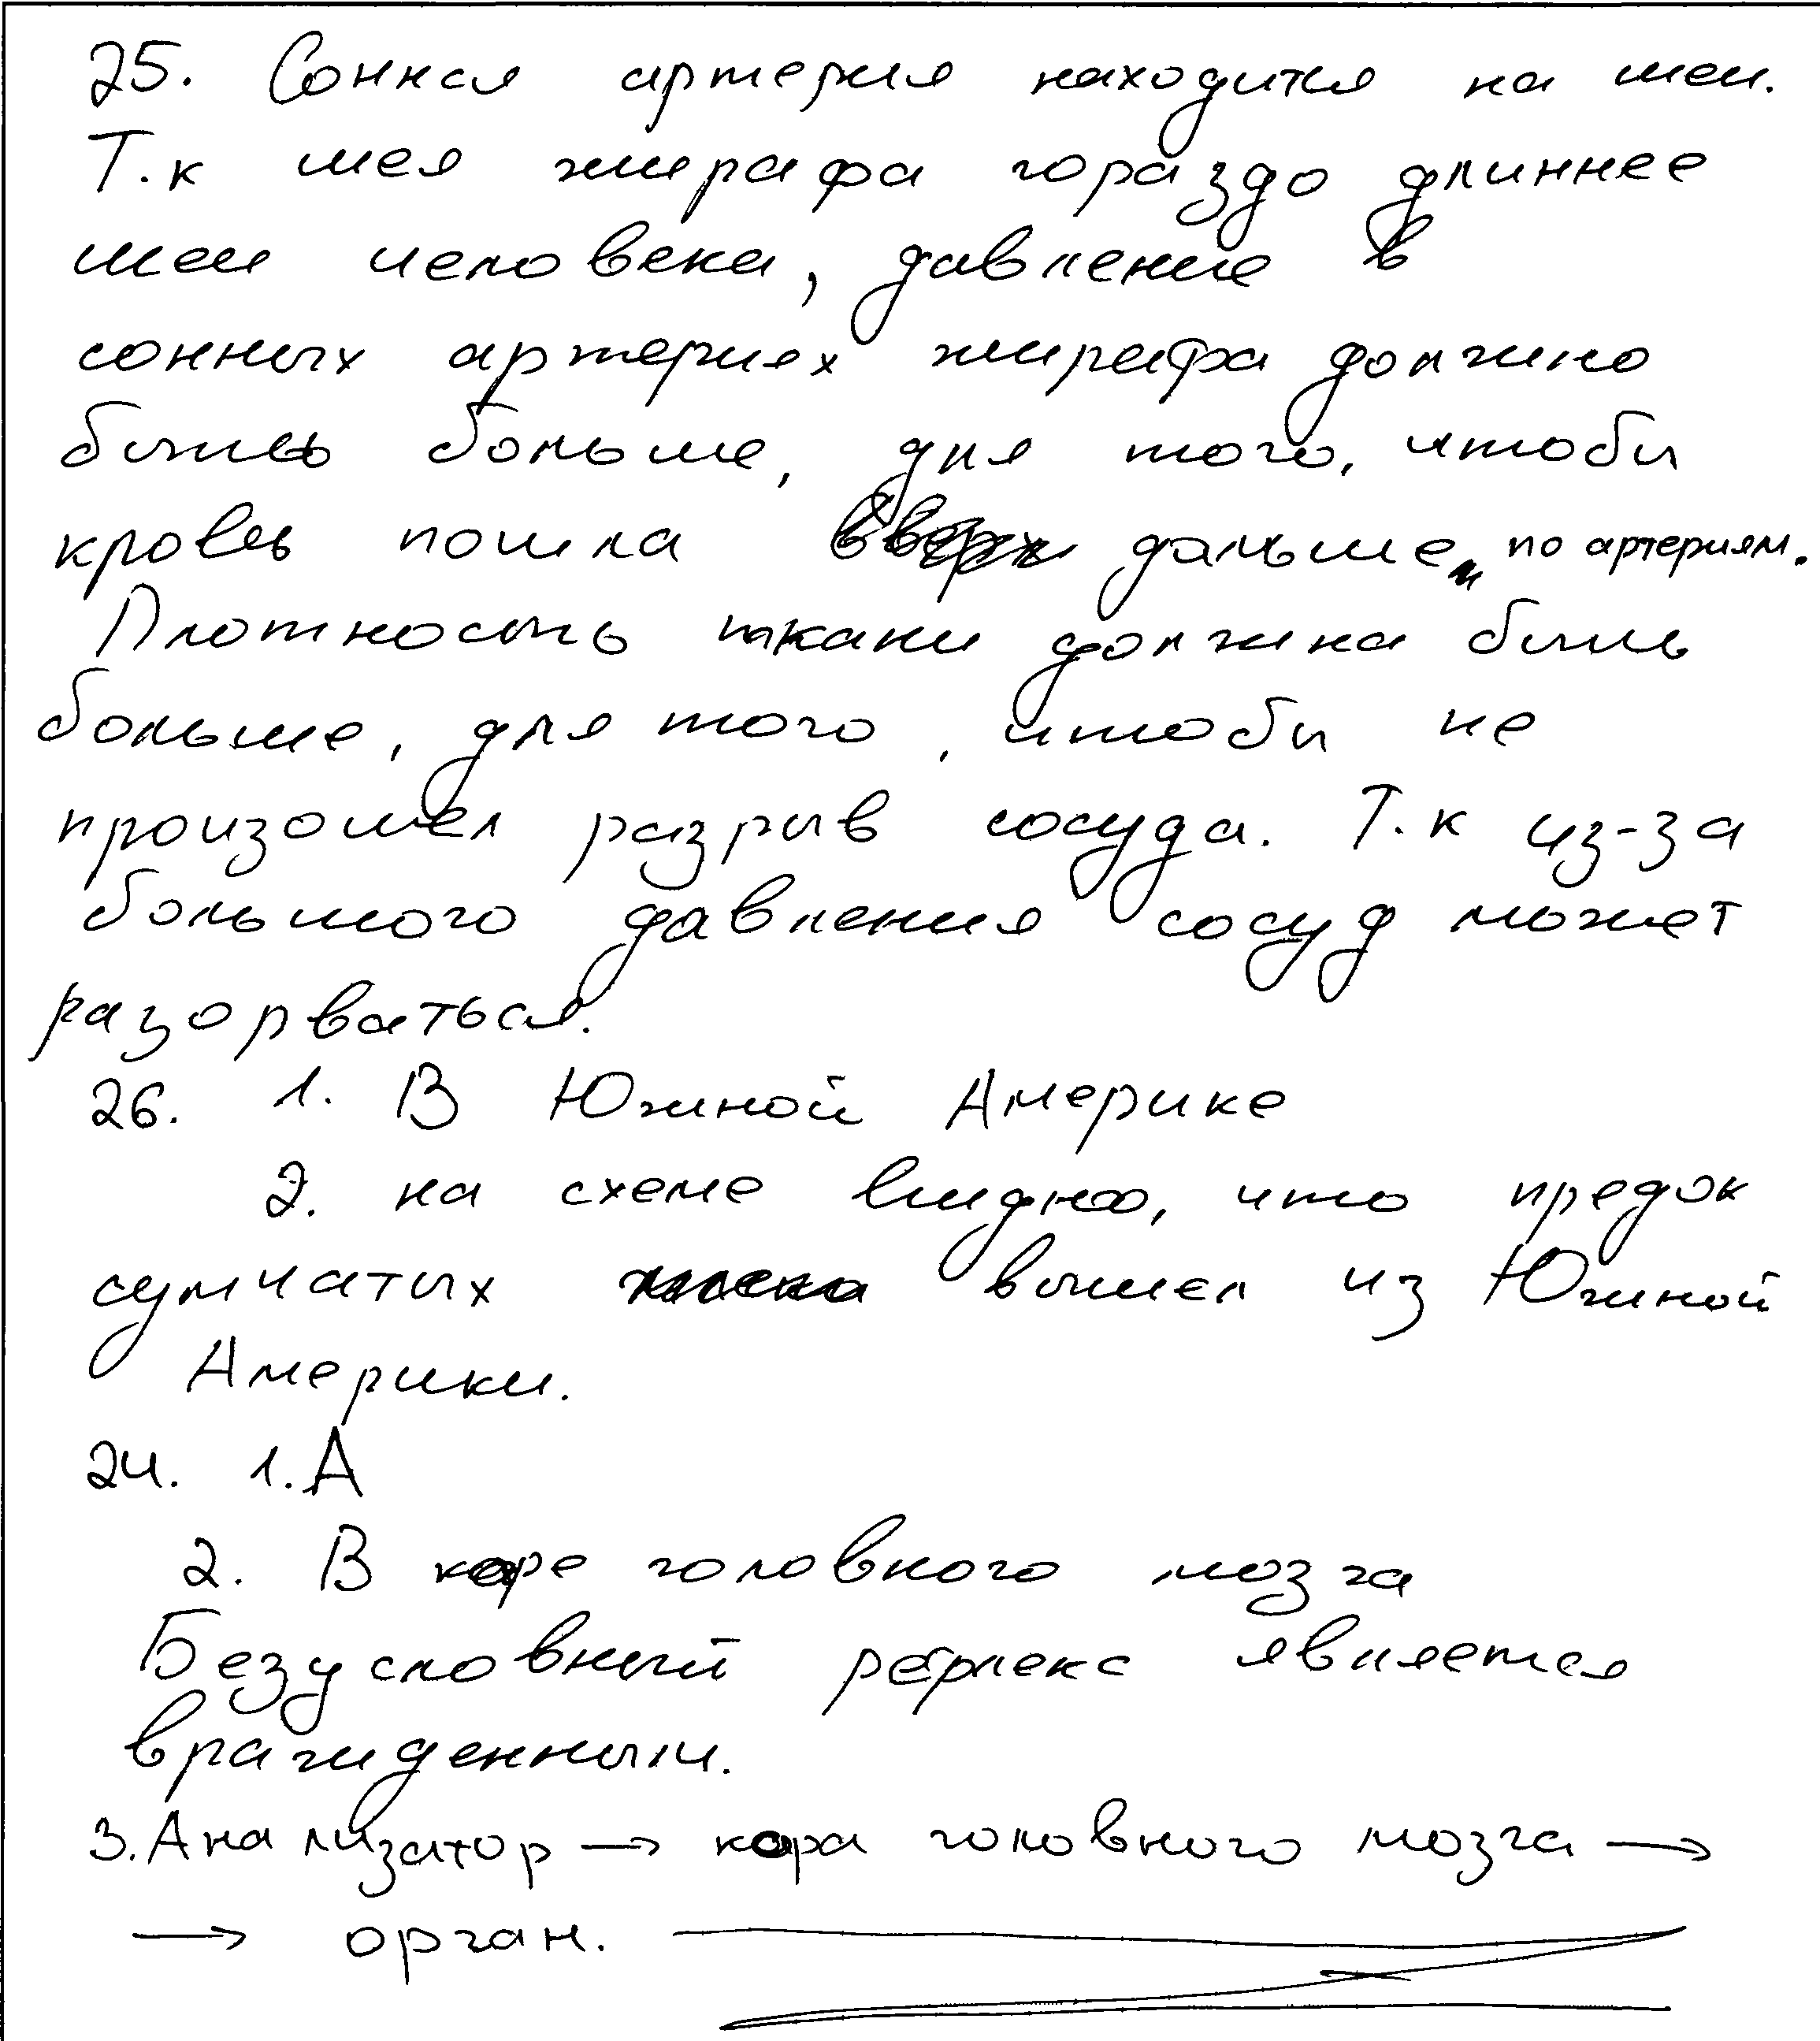 25. Сонная артерия находится на шеи.
Т.к шея жирафа гораздо длиннее
шеи человека, давление в
сонных артериях жирафа должно
быть больше, для того, чтобы
кровь пошла дальше по артериям.
Плотность ткани должна быть
больше, для того, чтобы не
произошел разрыв сосуда. Т.к из-за
большого давления сосуд может
разорваться.
26. 1. В Южной Америке
2. на схеме видно, что предок
сумчатых вышел из Южной
Америки.
24. 1. А
2. В коре головного мозга
Безусловный рефлекс является
вражденным.
3. Анализатор → кора головного мозга →
→ орган.